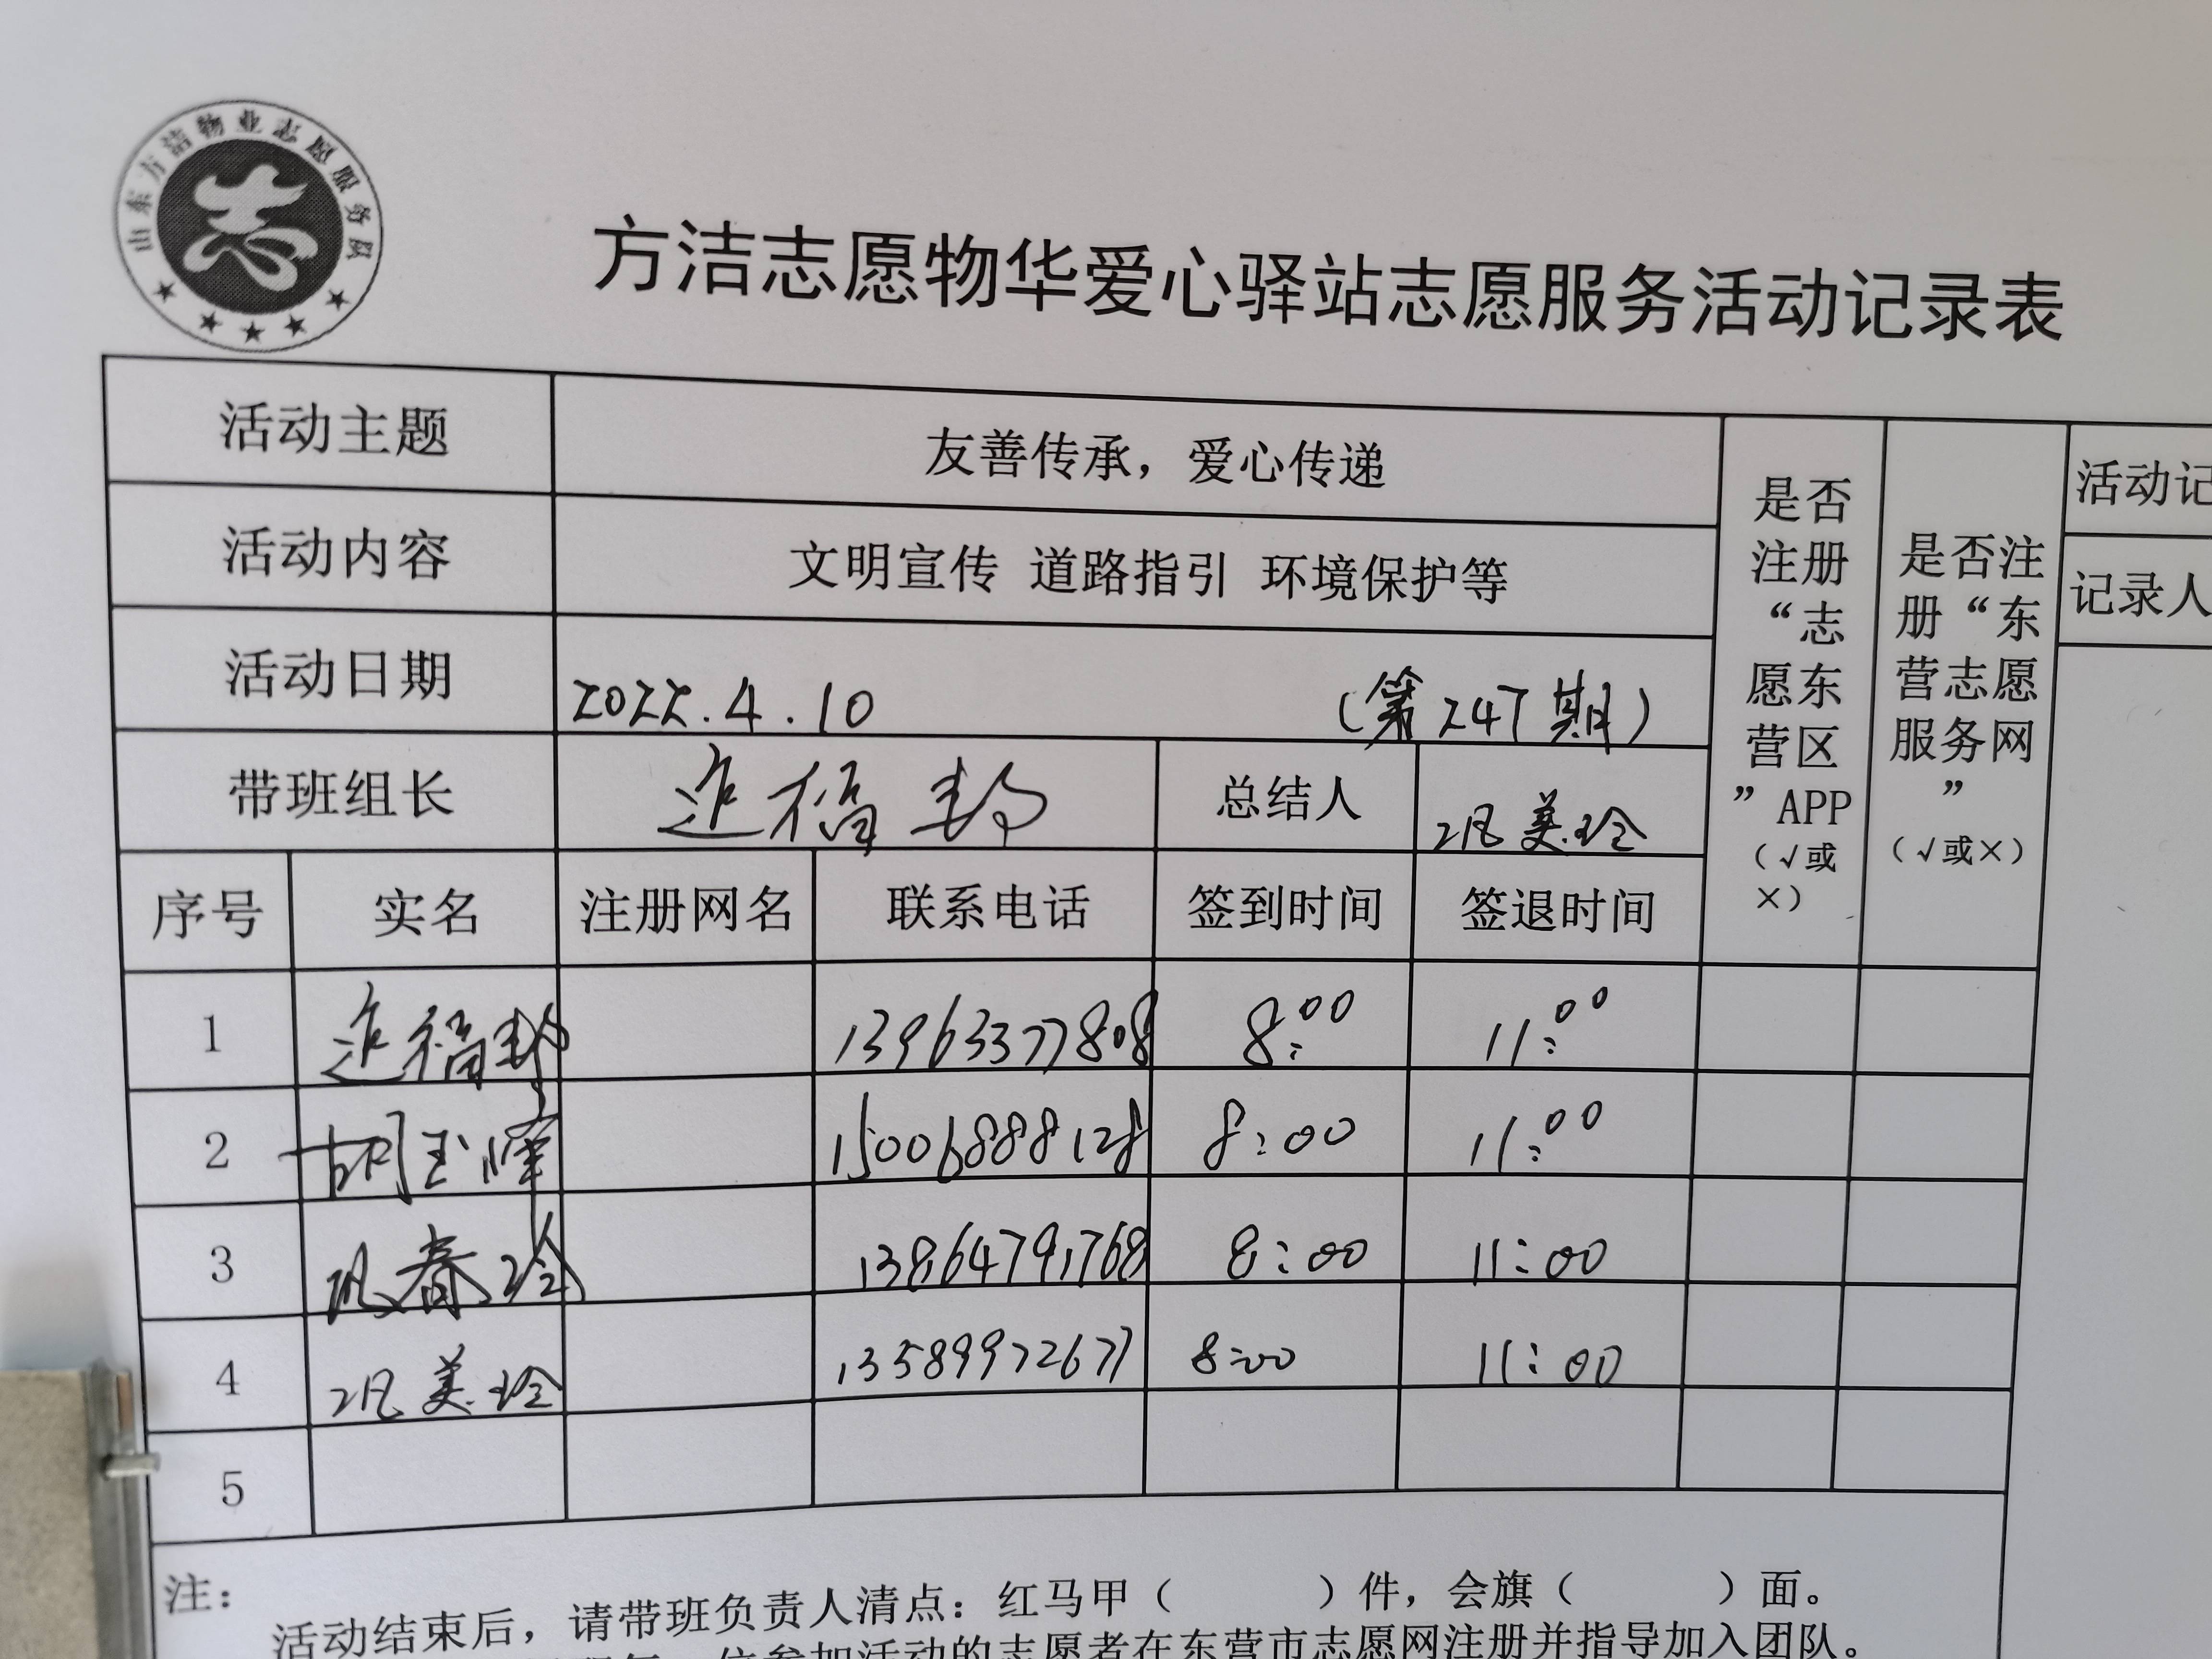 山东方洁物业志愿服务队
方洁志愿物华爱心驿站志愿服务活动记录表
活动主题 友善传承，爱心传递
活动内容 文明宣传 道路指引 环境保护等
活动日期 2022.4.10 （第247期）
带班组长 总结人 美玲
是否注册“志愿东营区”APP（√或×）
是否注册“东营志愿服务网”（√或×）
活动记
记录人
序号 实名 注册网名 联系电话 签到时间 签退时间
1 13963377808 8:00 11:00
2 胡玉 15006888128 8:00 11:00
3 春玲 13864791768 8:00 11:00
4 美玲 13589972677 8:00 11:00
5
注：
活动结束后，请带班负责人清点：红马甲（ ）件，会旗（ ）面。
参加活动的志愿者在东营市志愿网注册并指导加入团队。